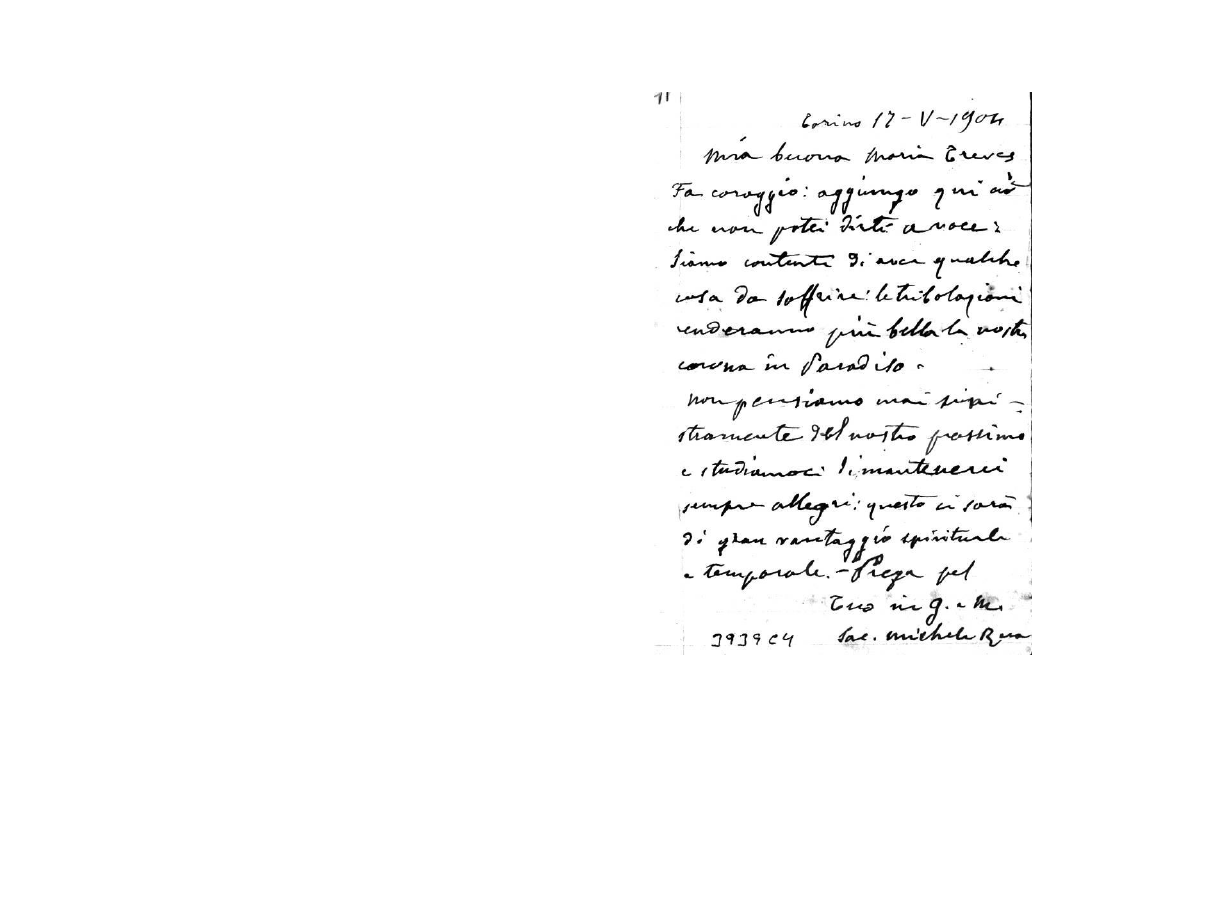 11
Torino 17-V-1904
Mia buona Maria Treves
Fa coraggio: aggiungo qui ciò
che non potei dirti a voce:
Siamo contenti di aver qualche
cosa da soffrire: le tribolazioni
renderanno più bella la nostra
corona in Paradiso.
Non pensiamo mai sini-
stramente del nostro prossimo
e studiamoci di mantenerci
sempre allegri: questo ci sarà
di gran vantaggio spirituale
e temporale. - Prega pel
Tuo in G. e M.
Sac. Michele Rua
3939C4